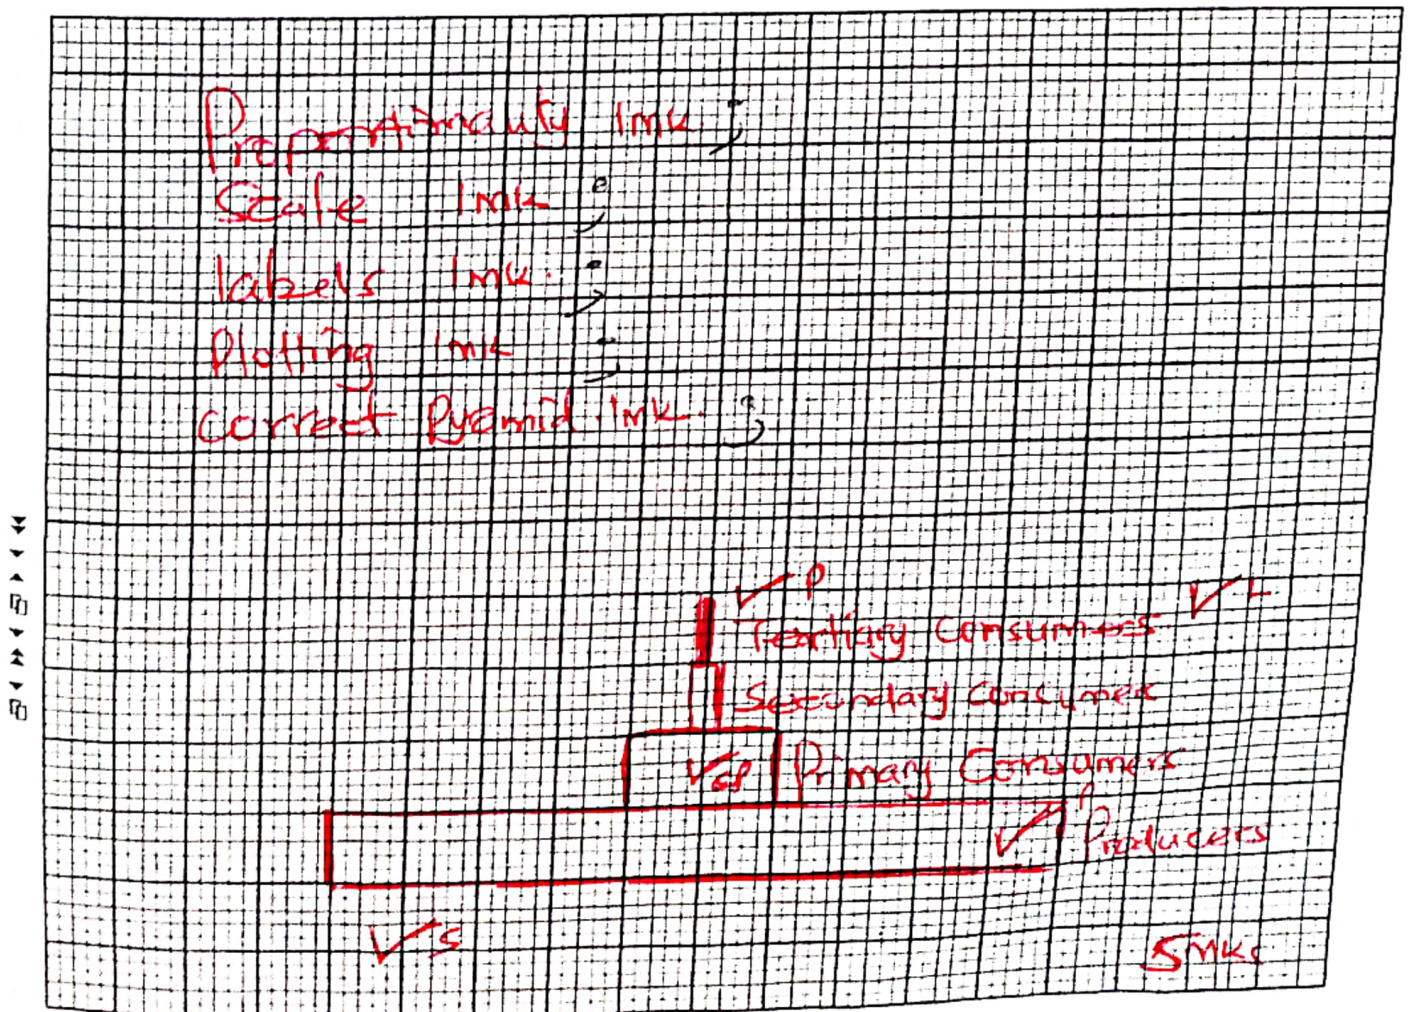 Proportionauty 1mk ;
Scale 1mk ;
labels 1mk. ;
Plotting 1mk ;
correct Pyramid. 1mk. ;
✓ P
Teartiary Consumers ✓ L
Secundary Consumer
✓ CP Primary Consumers
✓ P Producers
✓ S
5mks